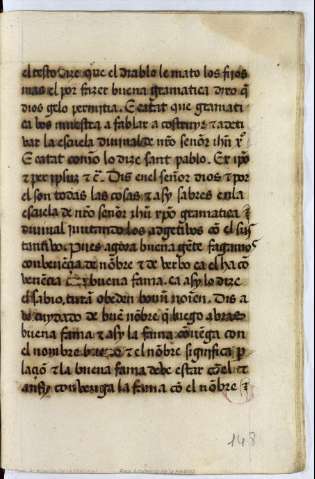 el testo dize que el diablo le mato los fijos
mas el por fazer buena gramatica dixo q̃
dios gelo permitia. E catat que gramati
ca vos muestra a fablar a costruyr & a deti
var la escuela diuinal de nr̃o señor ihũ xp̃
E catat commo lo dize sant pablo. Ex ip̃o
& per ipsuz & c̃. Dis en el señor dios & por
el son todas las cosas & asy sabres en la
escuela de nr̃o señor ihũ xp̃o gramatica
diuinal juntando los adgetiuos cõ el sus
tantiuo. Pues agora buena gẽte fagamos
conuenẽçia de nõbre & de verbo ca el ha cõ
venẽcia buena fama. ca asy lo dize
el sabio, curã abe de boun nomen. Dis
de cuydado de buẽ nõbre q̃ luego abraço
buena fama & asy la fama cõuẽga con
el nombre & el nõbre significa
& la buena fama debe estar cõ el
cõvenga la fama cõ el nõbre
148